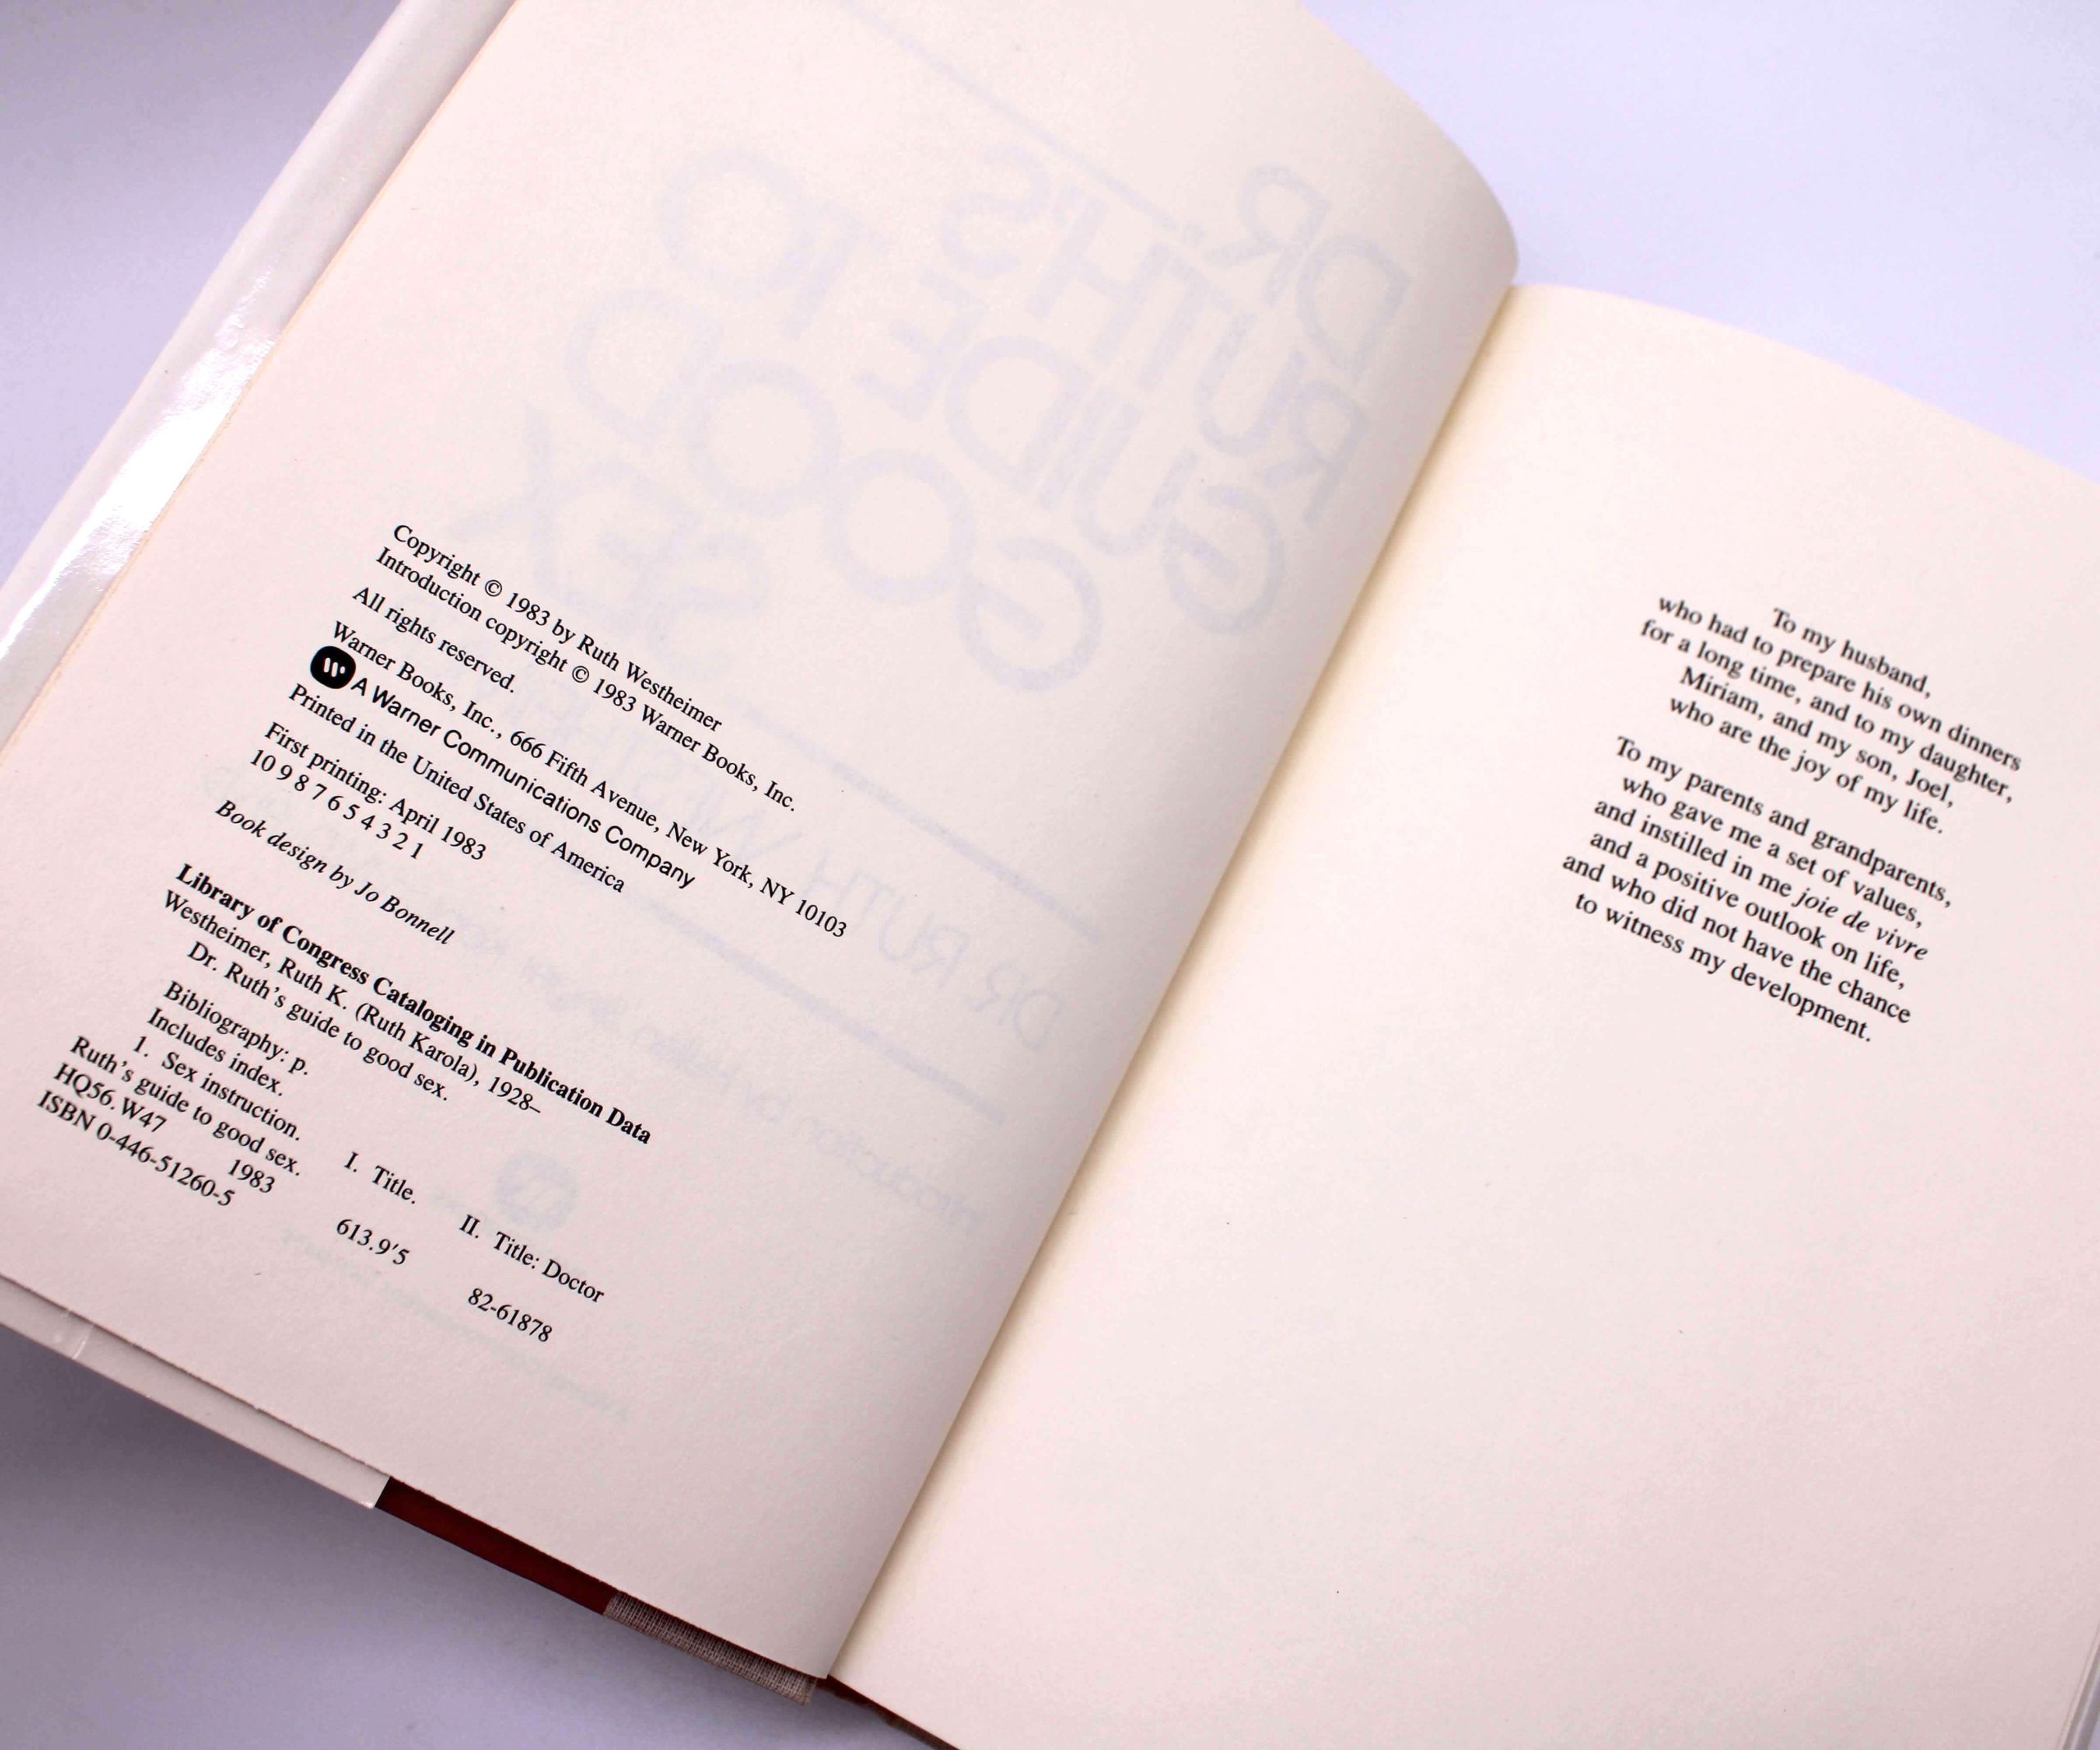 Copyright © 1983 by Ruth Westheimer
Introduction copyright © 1983 Warner Books, Inc.
All rights reserved.
Warner Books, Inc., 666 Fifth Avenue, New York, NY 10103
A Warner Communications Company
Printed in the United States of America
First printing: April 1983
10 9 8 7 6 5 4 3 2 1
Book design by Jo Bonnell
Library of Congress Cataloging in Publication Data
Westheimer, Ruth K. (Ruth Karola), 1928–
Dr. Ruth's guide to good sex.
Bibliography: p.
Includes index.
1. Sex instruction. I. Title. II. Title: Doctor
Ruth's guide to good sex.
HQ56.W47 1983 613.9'5 82-61878
ISBN 0-446-51260-5
DR
RUTH'S
GUIDE TO
GOOD
SEX
DR RUTH WESTHEIMER
To my husband,
who had to prepare his own dinners
for a long time, and to my daughter,
Miriam, and my son, Joel,
who are the joy of my life.
To my parents and grandparents,
who gave me a set of values,
and instilled in me joie de vivre
and a positive outlook on life,
and who did not have the chance
to witness my development.